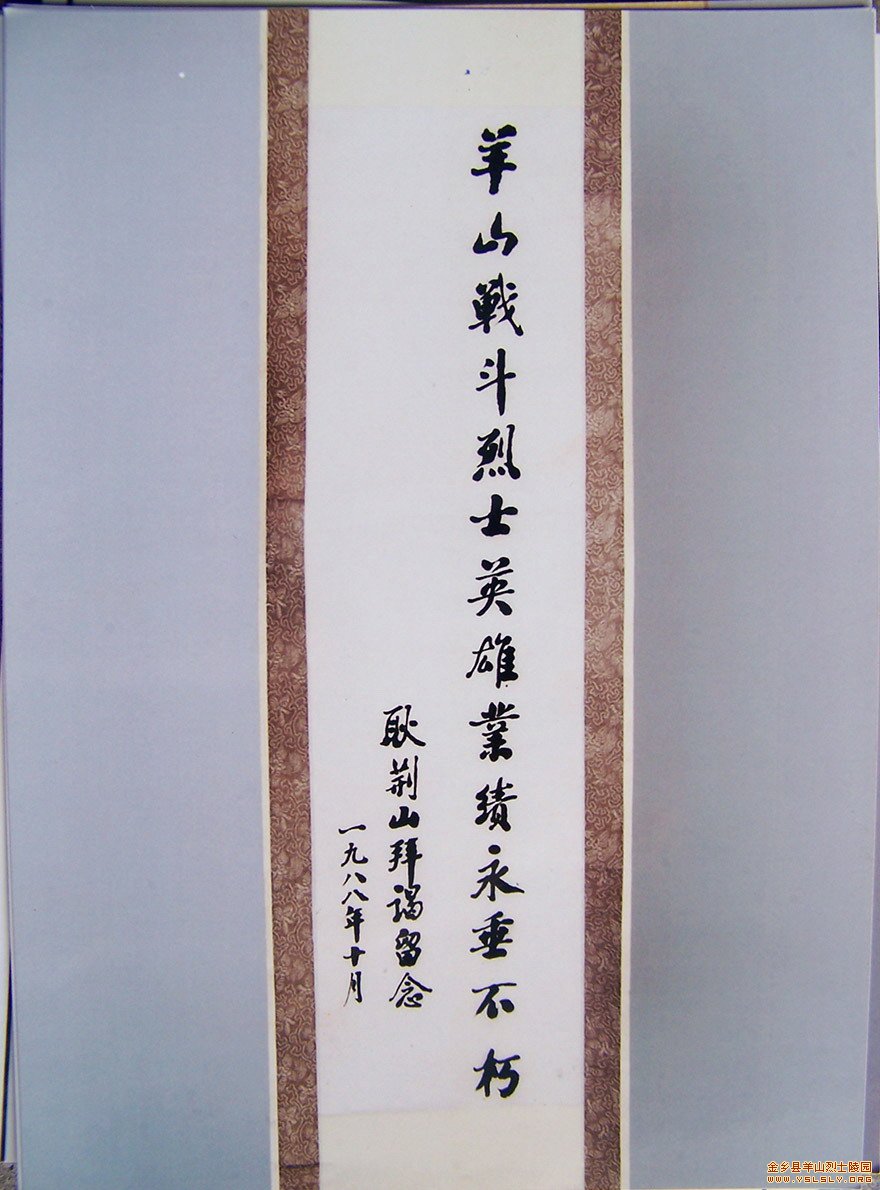 羊山戰斗烈士英雄業績永垂不朽
耿荆山拜謁留念
一九八八年十月
金乡县羊山烈士陵园
WWW.YSLSLY.ORG